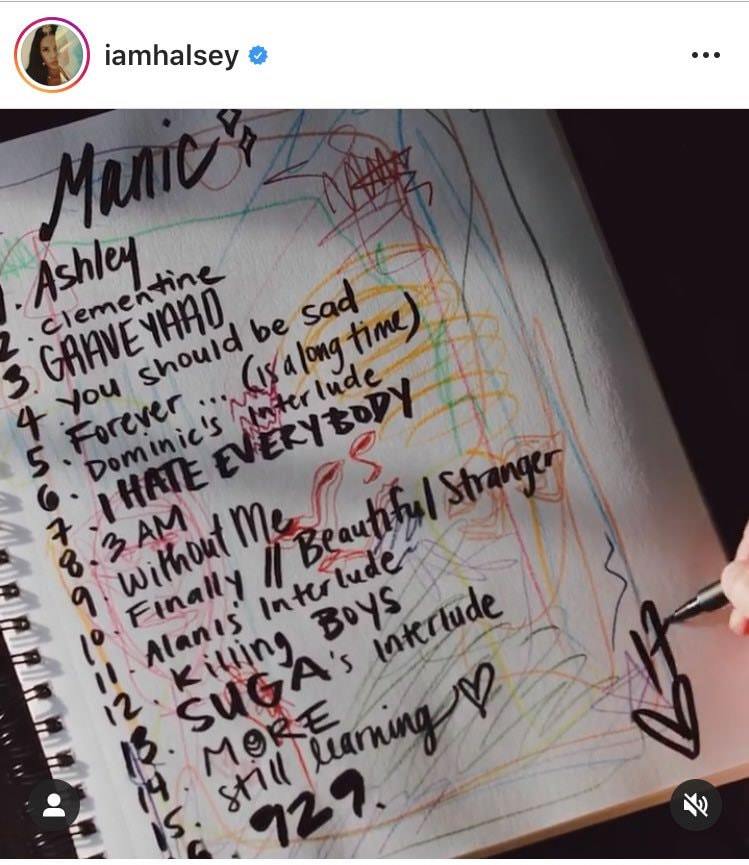 iamhalsey
Manic
1. Ashley
2. clementine
3. GRAVEYARD
4 you should be sad
5. Forever ... (is a long time)
6. Dominic's Interlude
7. I HATE EVERYBODY
8. 3 AM
9. Without Me
10. Finally // Beautiful Stranger
11. Alanis' Interlude
12. Killing BOYS
13. SUGA's Interlude
14. MORE
15. still learning ♡
929.
17